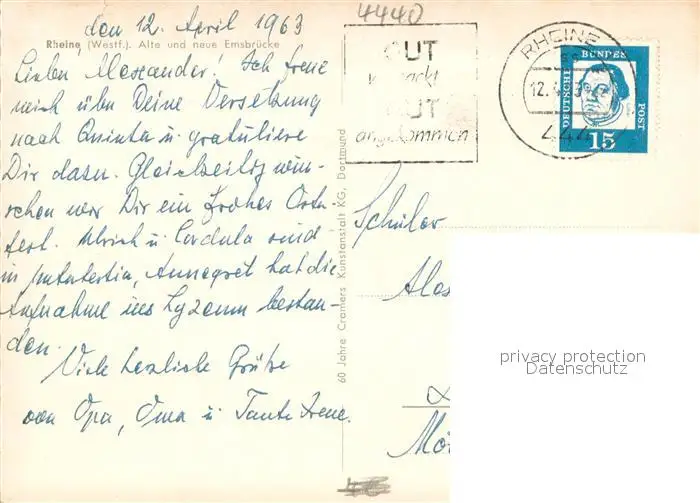 den 12. April 1963
Rheine (Westf.). Alte und neue Emsbrücke
Lieber Alexander! Ich freue
mich über Deine Versetzung
nach Quinta u. gratuliere
Dir dazu. Gleichzeitig wün-
schen wir Dir ein frohes Oster-
fest. Ulrich u. Cordula sind
in Untertertia, Annegret hat die
Aufnahme ins Lyzeum bestan-
den.
Viele herzliche Grüße
von Opa, Oma u Tante Irene.
60 Jahre Cramers Kunstanstalt KG, Dortmund
4440
GUT
verpackt
GUT
angekommen
RHEINE
12.4.
444
DEUTSCHE BUNDES POST
15
Schüler
Alex
privacy protection
Datenschutz